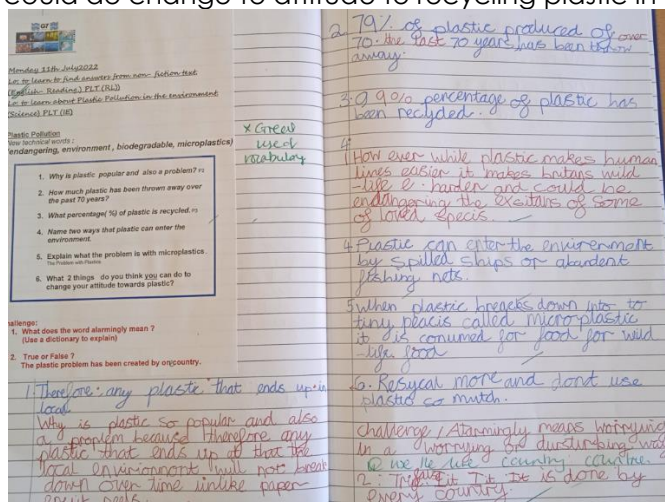 could do change to attitude to recycling plastic in
Monday 11th July2022
Lo: to learn to find answers from non- fiction text
(English- Reading) PLT (RL))
Lo: to learn about Plastic Pollution in the environment
(Science) PLT (IE)
Plastic Pollution
New technical words :
(endangering, environment , biodegradable, microplastics)
1. Why is plastic popular and also a problem?
2. How much plastic has been thrown away over
the past 70 years?
3. What percentage( %) of plastic is recycled.
4. Name two ways that plastic can enter the
environment.
5. Explain what the problem is with microplastics.
The Problem with Plastics
6. What 2 things do you think you can do to
change your attitude towards plastic?
allenge:
1. What does the word alarmingly mean ?
(Use a dictionary to explain)
2. True or False ?
The plastic problem has been created by one country.
x Great
used
vocabulary
1 Therefore: any plastic that ends up in
local
Why is plastic so popular and also
a problem because therefore any
plastic that ends up at that the
local envirionnont will not break
down over time unlike paper
2 79% of plastic produced of over
70. the last 70 years has been throw
away.
3. 9 9% percentage of plastic has
been recycled.
4
How ever while plastic makes human
lives easier it makes britans wild
-life harder and could be
endangering the exsitans of some
of loved specis.
4 Plastic can enter the envirenment
by spilled ships or abandent
fishing nets.
5 when plastic breaks down into to
tiny peacis called microplastic
it is conumed for food for wild
-life food
6. Resycal more and dont use
plastic so mutch.
Challenge 1 Alarmingly means worrying
in a worrying or dursturbing way
country
2: It is done by
every country